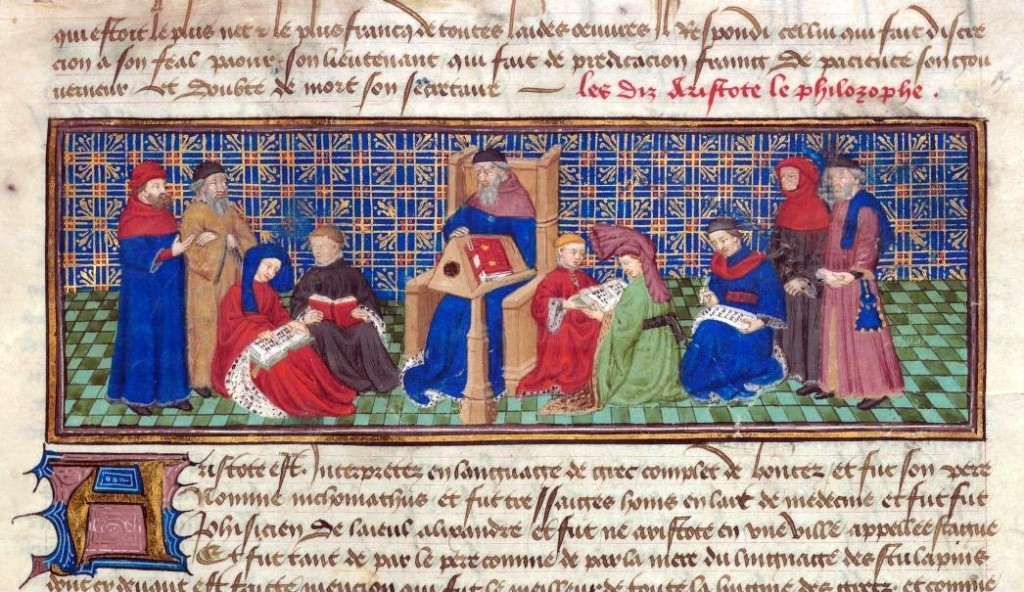 qui estoit le plus net & le plus francq de toutes laides oeuures Respondi cellui qui fait discre
cion a son feal paour son lieutenant qui fait de predicacion franng de pacience son gou
uerneur Et doubte de mort son secretaire
les diz Aristote le philozophe .
Aristote est Interpretez en languaige de grec complet de bontez et fut son pere
Nomme nichomathus et fut tressaiges homs en lart de medecine et fut fut
Phisicien de laieul alixandre et fut ne aristote en vne ville appellee stagne
Et fut tant de par le pere comme de par la mere du linguaige des
dont cy deuant est faicte mencion qui fut le meilleur de toute la lingnie des grecz et comme